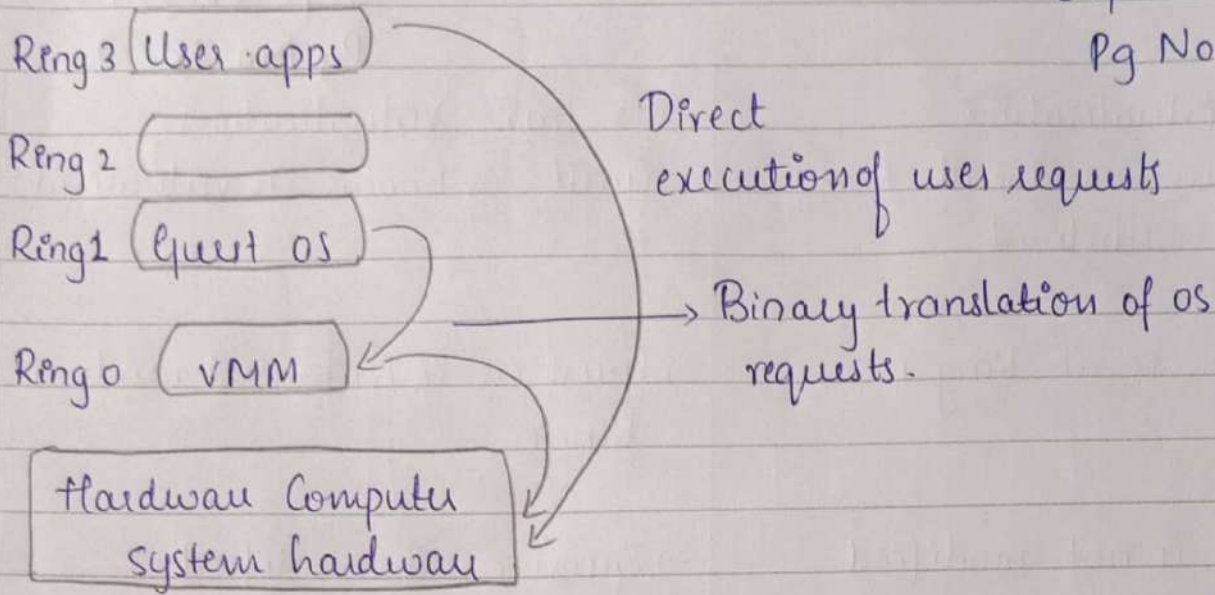 Pg No
Ring 3 User apps
Direct
execution of user requests
Ring 2
Ring 1 Guest OS
Binary translation of OS
requests.
Ring 0 VMM
Hardware Computer
system hardware